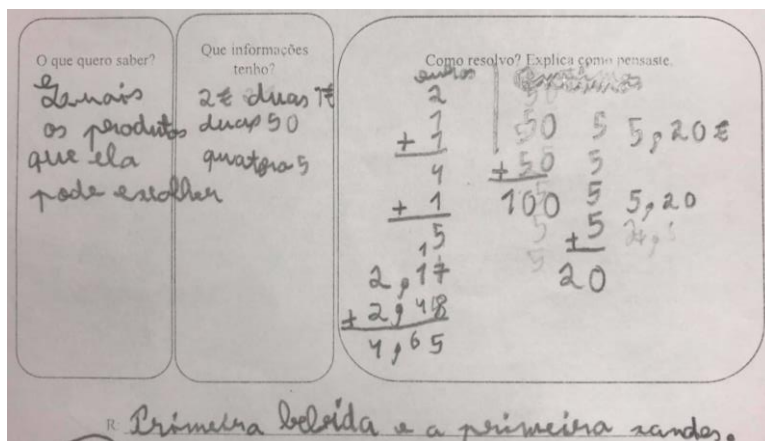 O que quero saber?
Quais
os produtos
que ela
pode escolher
Que informações
tenho?
2€ duas 1€
duas 50
quatro 5
Como resolvo? Explica como pensaste.
euros
2
1
+ 1
4
+ 1
5
2,17
+ 2,48
4,65
50
+ 50
100
5
5
5
+ 5
20
5,20€
5,20
R Primeira bebida e a primeira sandes.